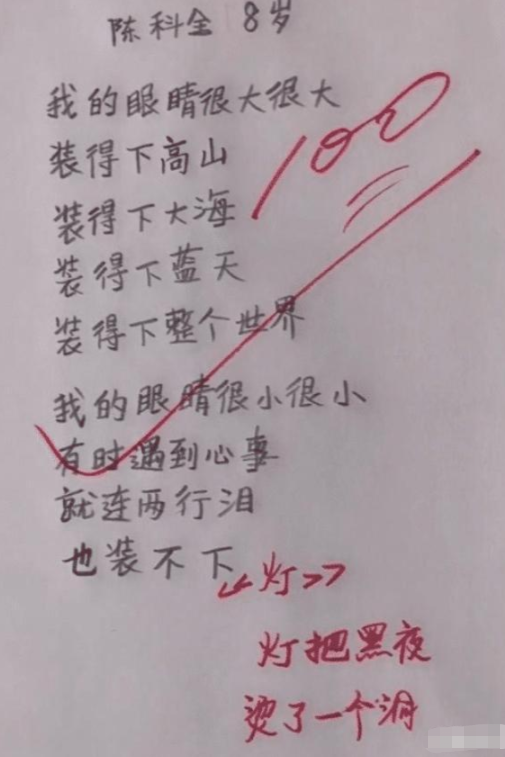 陈科全 8岁
我的眼睛很大很大
装得下高山
装得下大海
装得下蓝天
装得下整个世界
我的眼睛很小很小
有时遇到心事
就连两行泪
也装不下
100
《灯》
灯把黑夜
烫了一个洞